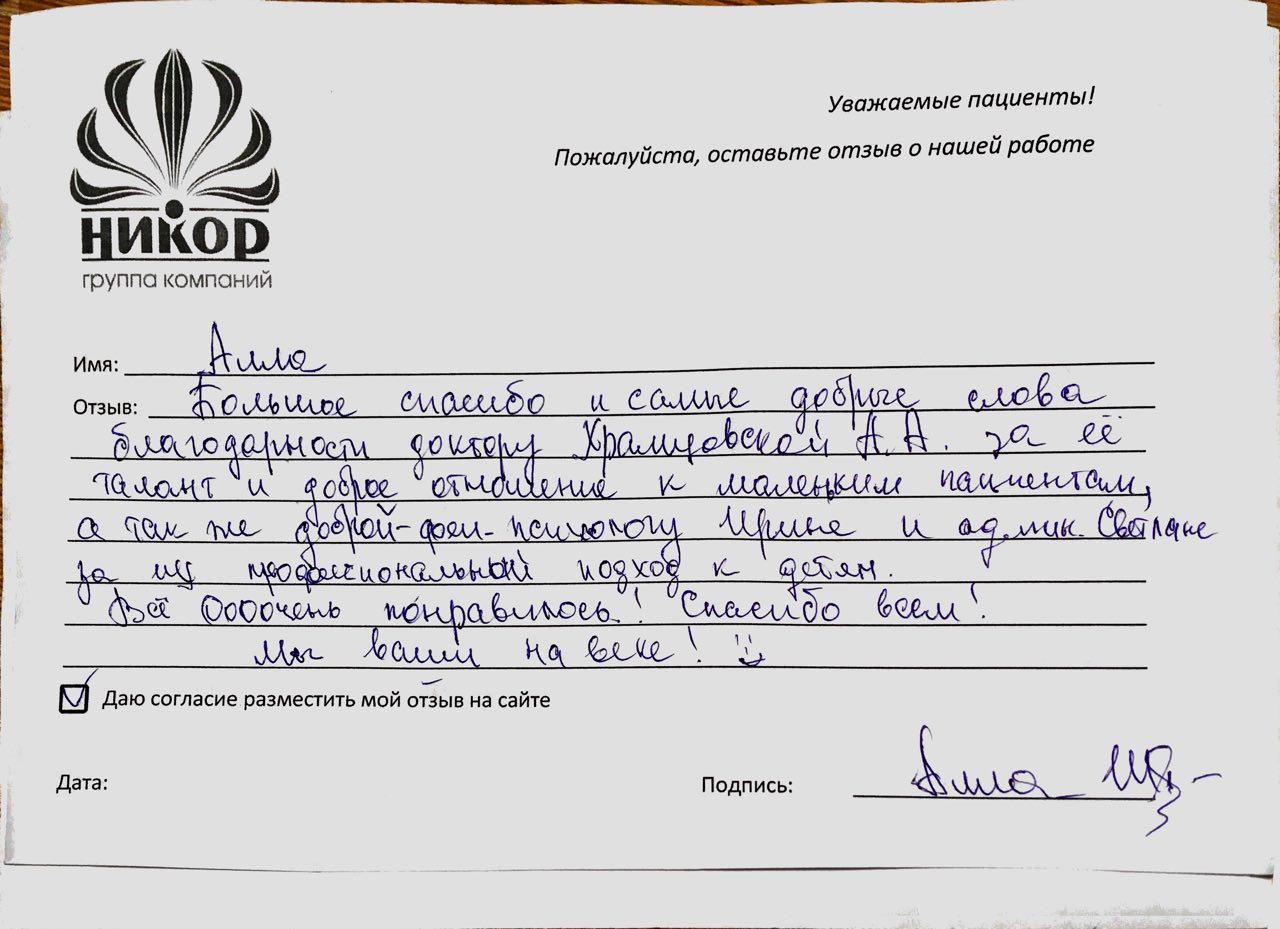 Уважаемые пациенты!
Пожалуйста, оставьте отзыв о нашей работе
НИКОР
группа компаний
Имя: Алла
Отзыв: Большое спасибо и самые добрые слова
благодарности доктору Храмцовской А.А. за её
талант и доброе отношение к маленьким пациентам,
а так же доброй-феи-психологу Ирине и админ. Светлане
за их професиональный подход к детям.
Всё Оооочень понравилось! Спасибо всем!
Мы ваши на веке!
Даю согласие разместить мой отзыв на сайте
Дата:
Подпись: Алла